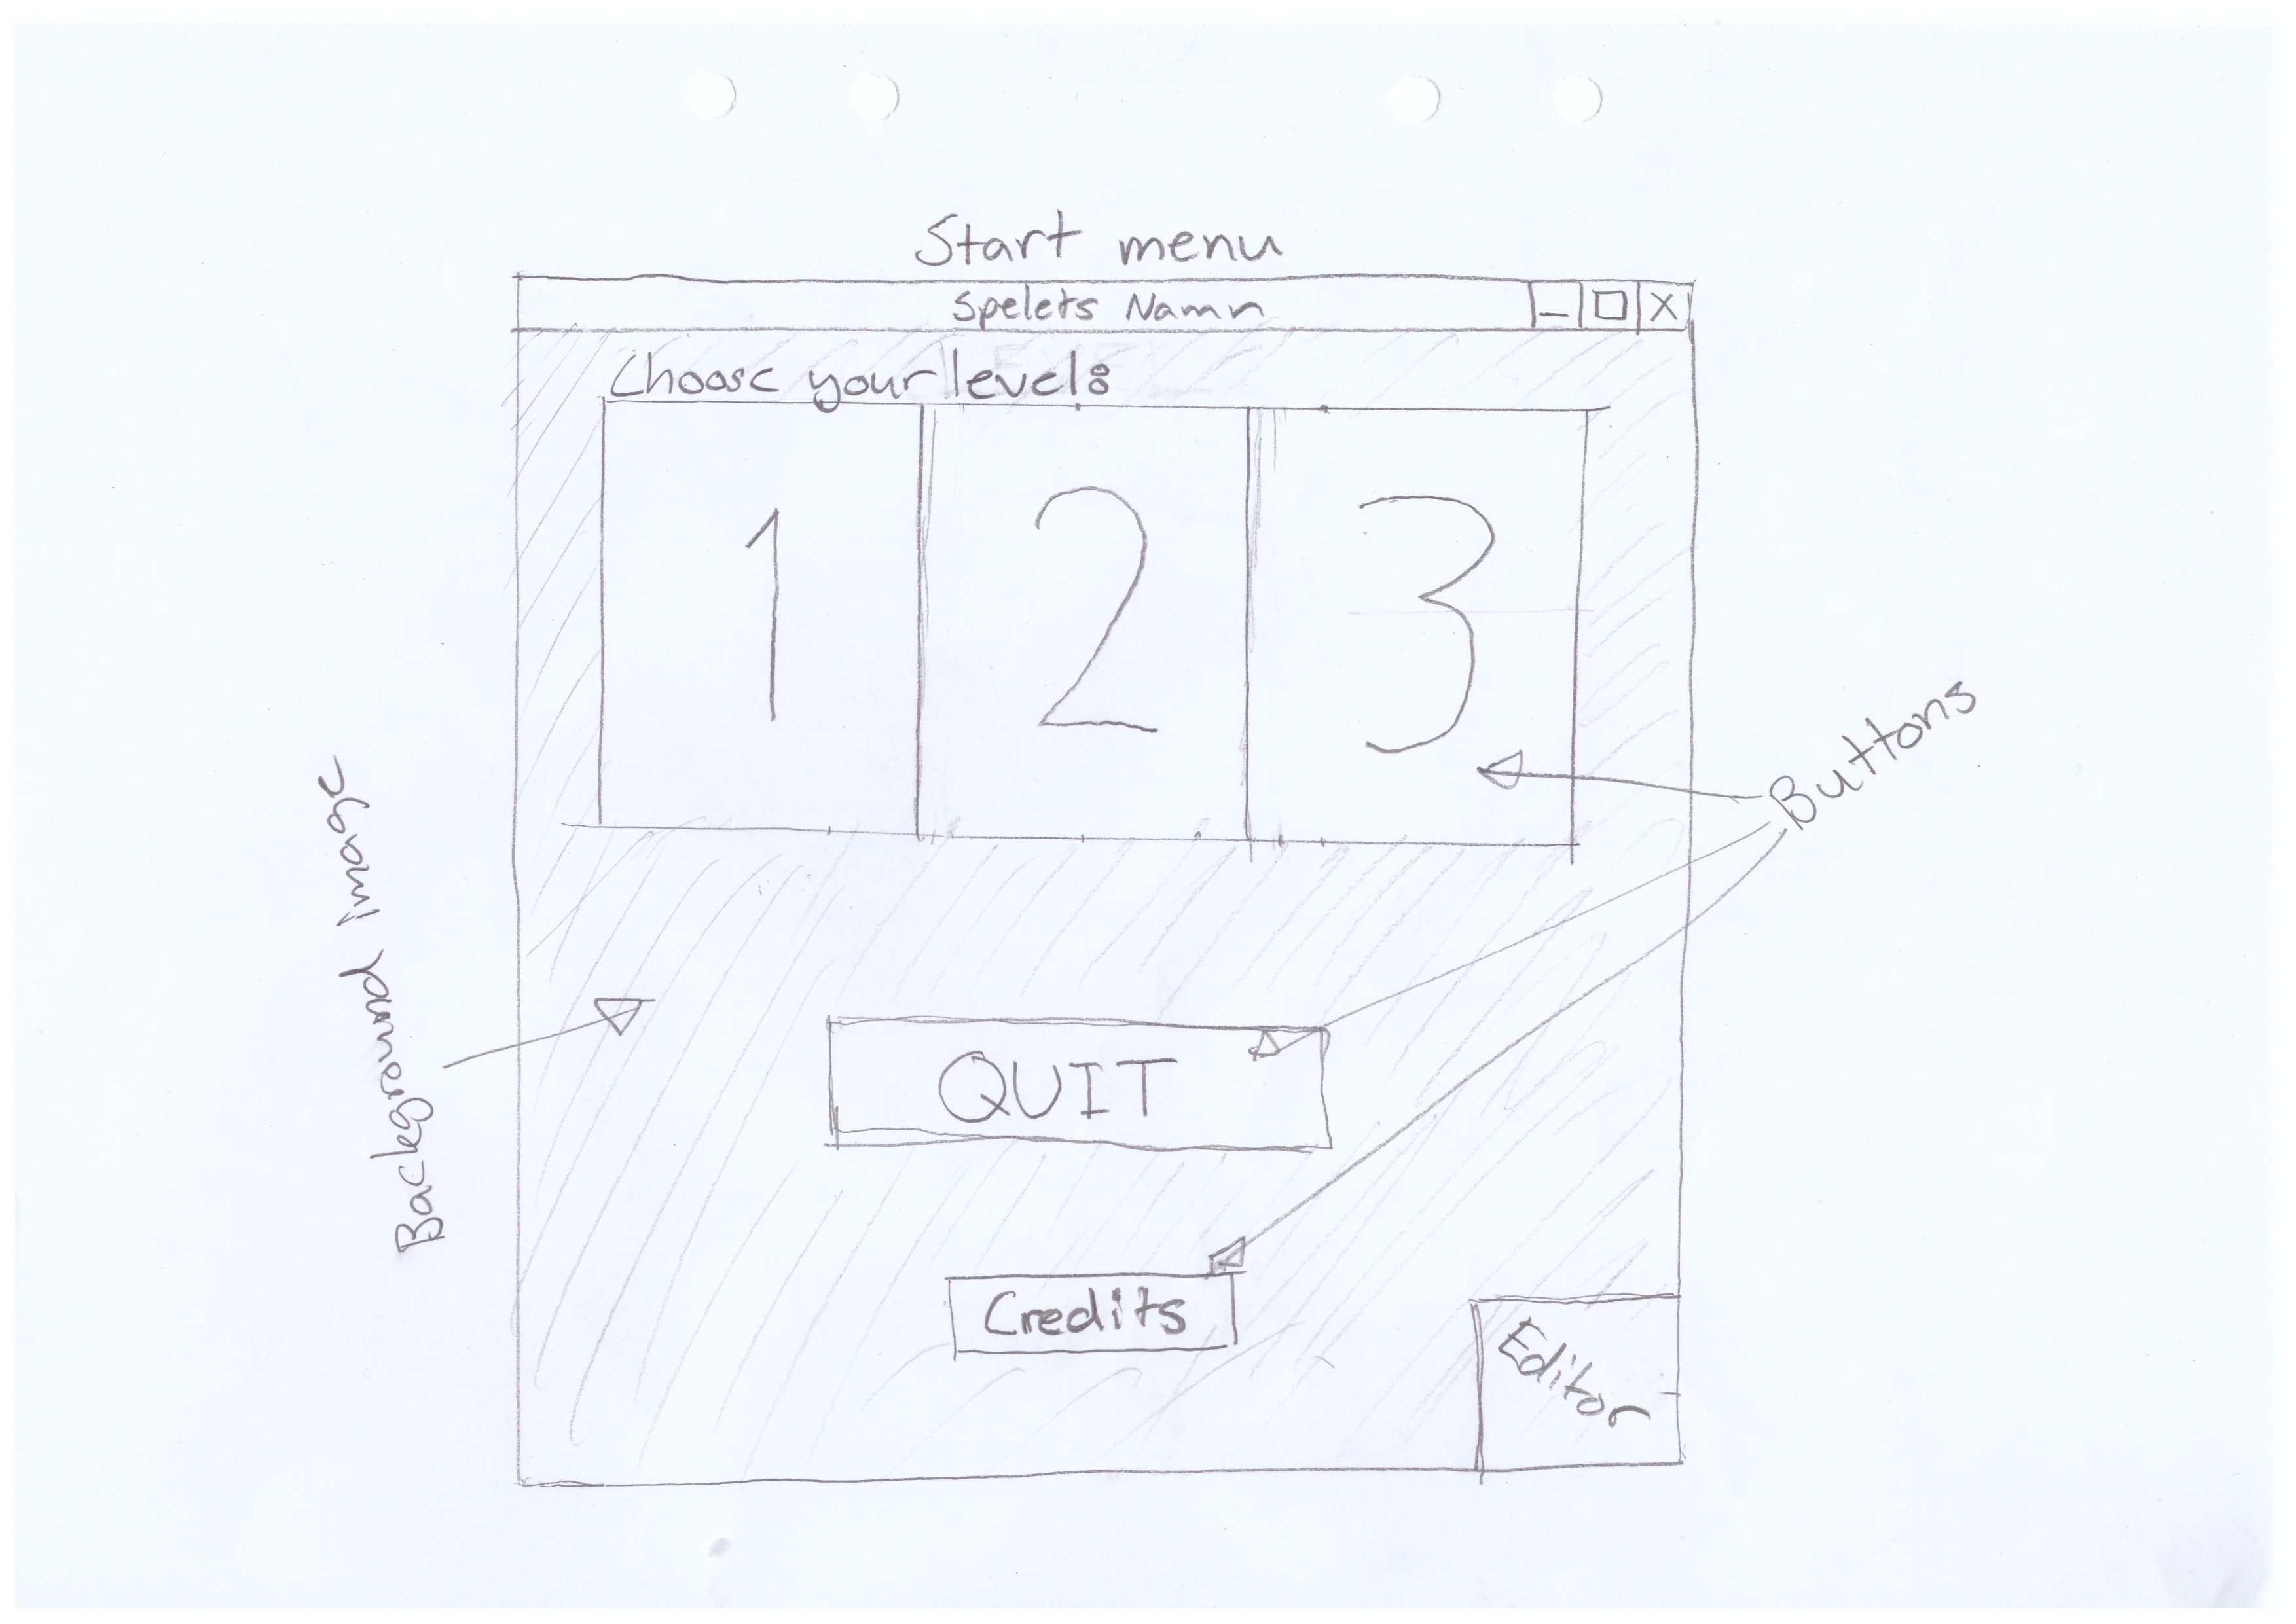 Start menu
Spelets Namn
Choose your level:
1
2
3
Buttons
Background image
QUIT
Credits
Editor